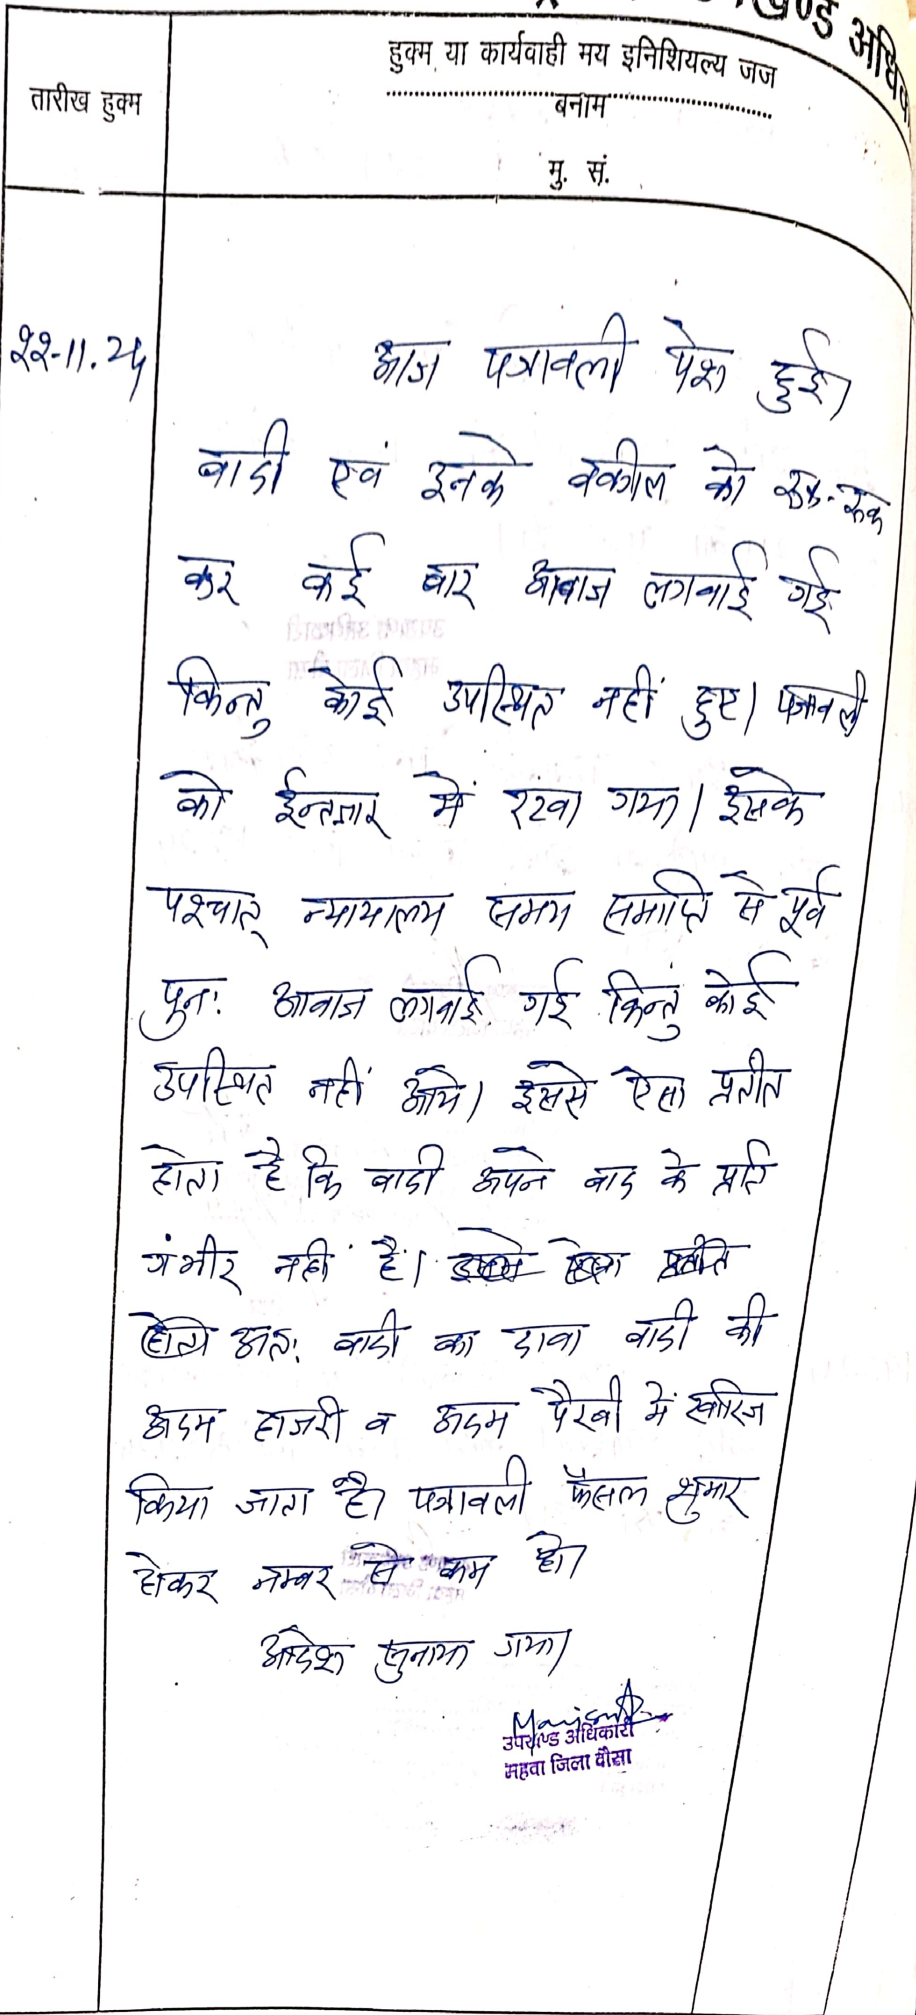 खण्ड अधि
हुक्म या कार्यवाही मय इनिशियल्य जज
तारीख हुक्म
बनाम
मु. सं.
२२-11.24
आज पत्रावली पेश हुई।
वादी एवं इनके वकील को रुक-रुक
कर कई बार आवाज लगवाई गई
किन्तु कोई उपस्थित नहीं हुए। पत्रावली
को ईन्तजार में रखा गया। इसके
पश्चात् न्यायालय समय समाप्ति से पूर्व
पुनः आवाज लगवाई गई किन्तु कोई
उपस्थित नहीं आये। इससे ऐसा प्रतीत
होता है कि वादी अपने वाद के प्रति
गंभीर नहीं है। इससे ऐसा प्रतीत
होता अतः वादी का दावा वादी की
अदम हाजरी व अदम पैरवी में खारिज
किया जाता है। पत्रावली फैसल शुमार
होकर नम्बर से कम हो।
आदेश सुनाया गया।
उपखण्ड अधिकारी
महवा जिला दौसा